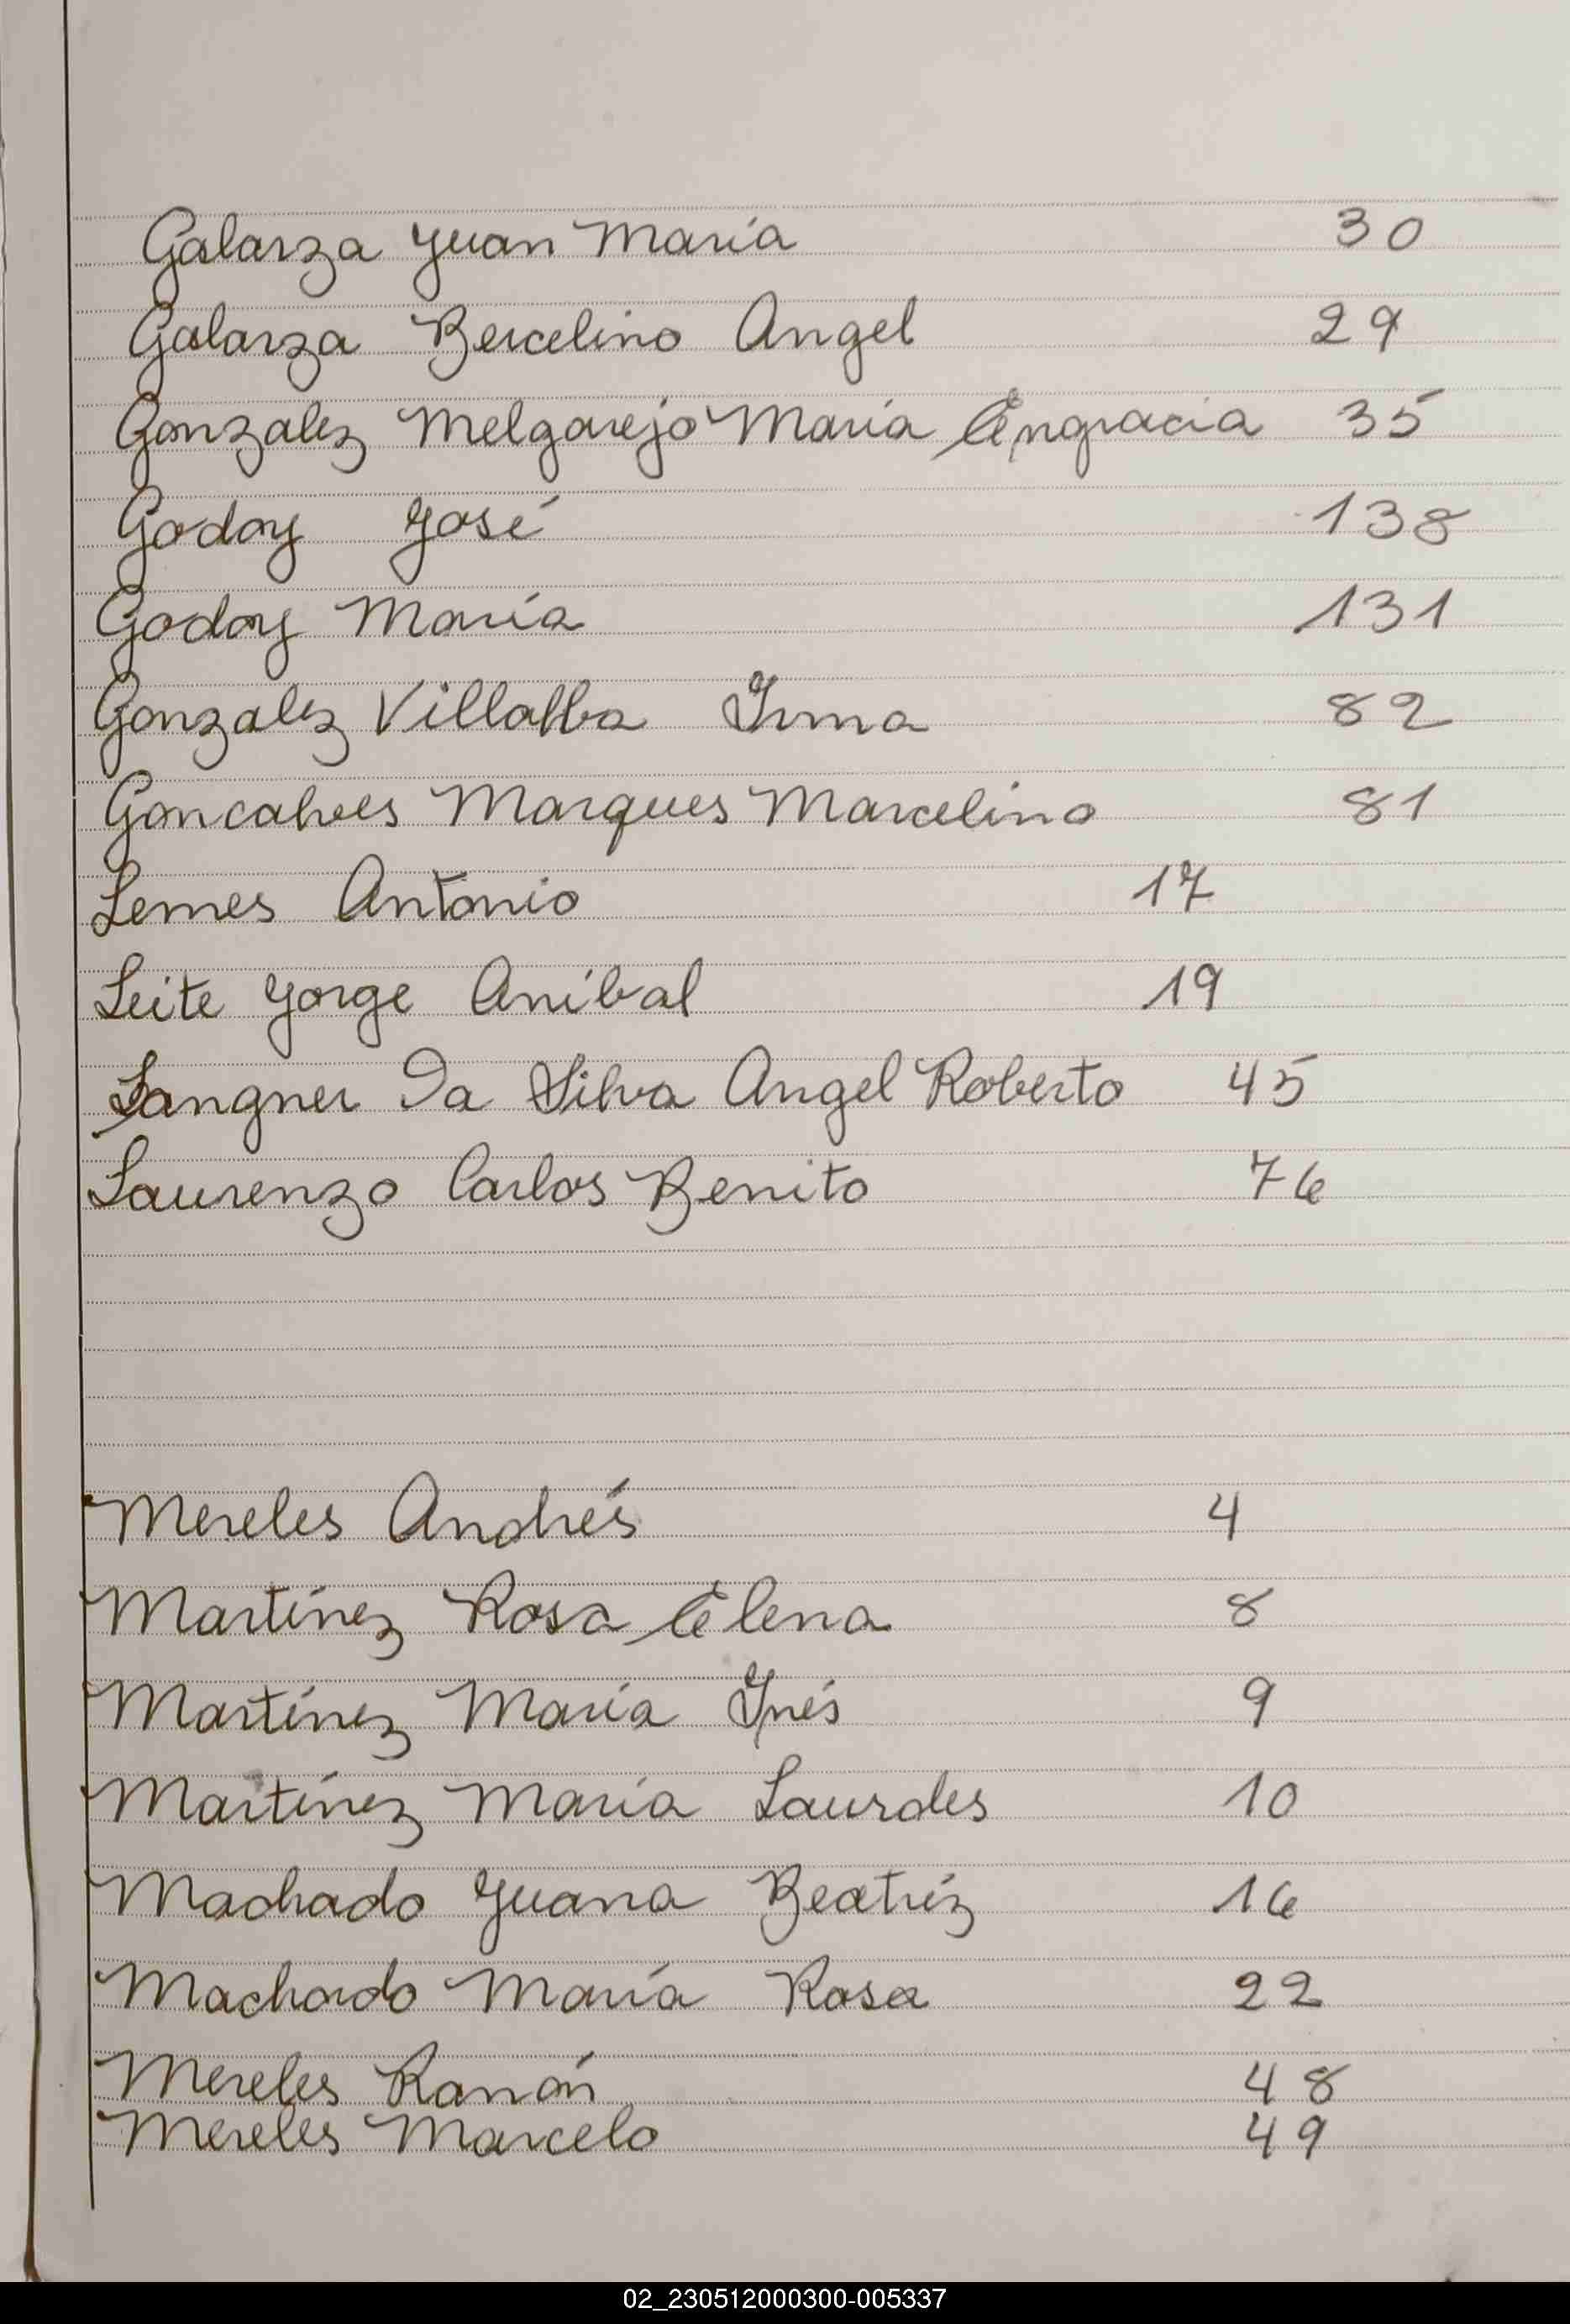 Galarza Juan María 30
Galarza Bercelino Angel 29
Gonzalez Melgarejo María Engracia 35
Godoy José 138
Godoy María 131
Gonzalez Villalba Irma 82
Goncalves Marques Marcelino 81
Lemes Antonio 17
Leite Jorge Aníbal 19
Langner Da Silva Angel Roberto 45
Laurenzo Carlos Benito 76
Mereles Andrés 4
Martínez Rosa Elena 8
Martínez María Inés 9
Martínez María Lourdes 10
Machado Juana Beatríz 16
Machado María Rosa 22
Mereles Ramón 48
Mereles Marcelo 49
02_230512000300-005337